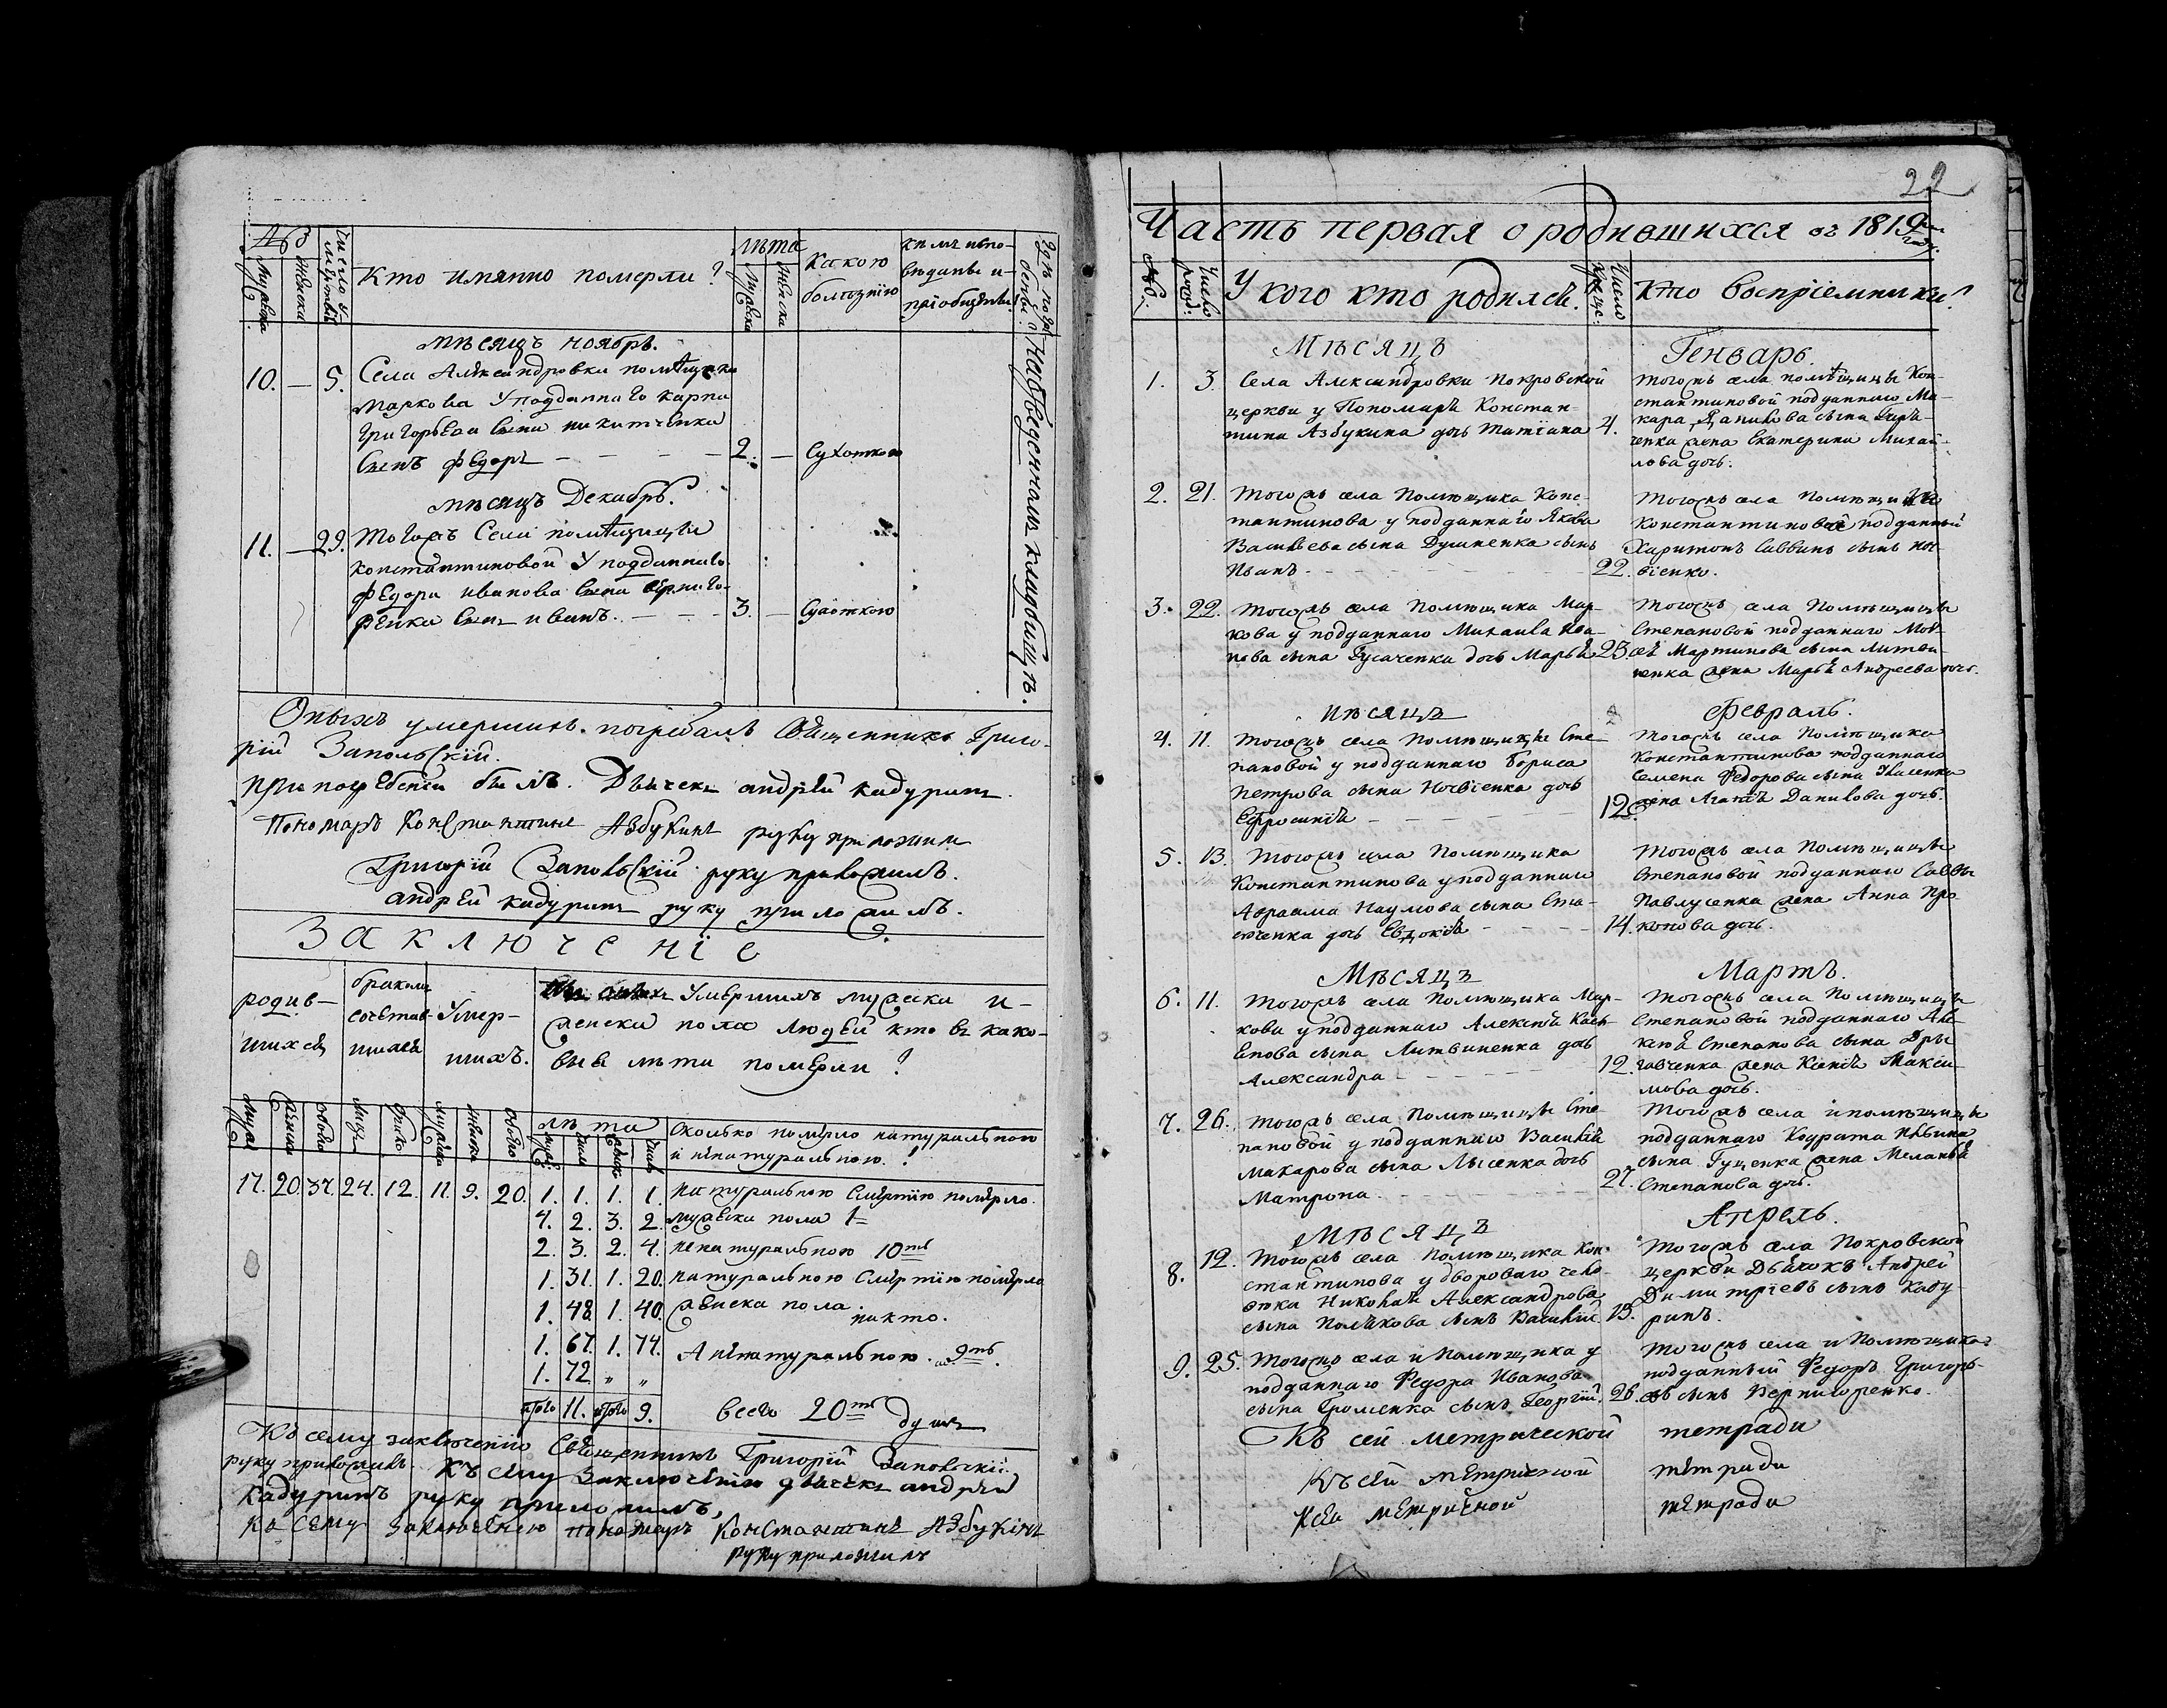 Кто имянно померли?
лѣта
Какою
болѣзнію
мѣсяцъ ноябрь.
10. — 5. Села Александровки помѣщика
Маркова у подданнаго Карпа
Григорьева сына Никитченка
сынъ Федоръ — — — — 2. — Сухоткою
мѣсяцъ Декабрь.
11. — 29. Тогожъ Села помѣщицы
Константиновой у подданнаго
Федора Иванова сына
сынъ Иванъ. — — — 3. — Сухоткою
На отведенномъ кладбищѣ.
Оныхъ умершихъ погребалъ Священникъ Григо-
рій Запольскій.
при погребеніи былъ Дьячекъ андрей кадуринъ.
Пономарь Константинъ Азбукинъ руку приложилъ
Григорій Запольскій руку приложилъ.
андрей кадуринъ руку приложилъ.
Заключеніе
родив-
шихся
бракомъ
сочетав-
шихся
Умер-
шихъ.
Умершихъ мужеска и
женска пола людей кто въ како-
выя лѣта померли?
лѣта
Сколько померло натуральною
и ненатуральною?
17. 20. 37. 24. 12. 11. 9. 20. 1. 1. 1. 1. Натуральною Смертію померло
4. 2. 3. 2. мужеска пола 1
2. 3. 2. 4. ненатуральною 10ть
1. 31. 1. 20. натуральною Смертію померло
1. 48. 1. 40. женска пола никто.
1. 67. 1. 74. А ненатуральною 9ть.
1. 72. „ „
итого 11. итого 9. всего 20ть душъ
Къ сему заключенію Священникъ Григорій Запольскій
руку приложилъ. Къ сему Заключенію дьячекъ андрей
Кадуринъ руку приложилъ,
Ко сему заключению пономарь Константинъ Азбукинъ
руку приложилъ
22
Часть первая о родившихся въ 1819м году.
Число
рожд:
У кого кто родился.
Число
крещ:
Кто воспріемники?
Мѣсяцъ
Генварь.
1. 3. Села Александровки Покровской
церкви у Пономаря Констан-
тина Азбукина дочь Татіана 4.
Тогожъ села помѣщицы Кон-
стантиновой подданнаго Ма-
кара Данилова сына
жена Екатерина Михай-
лова дочь.
2. 21. Тогожъ села Помѣщика Конс-
тантинова у подданнаго Якова
Васильева сына Душненка сынъ
Иванъ — — — 22.
Тогожъ села Помѣщицы
Константиновой подданный
Харитонъ Саввинъ сынъ
3. 22. Тогожъ села Помѣщика Мар-
кова у подданнаго Михаила Ива-
нова сына Гусаченка дочь Марья 23.
Тогожъ села Помѣщицы
Степановой подданнаго Мои-
сея Мартинова сына Литви-
ненка жена Марья Андреева дочь.
Мѣсяцъ
Февраль.
4. 11. Тогожъ села Помѣщицы Сте-
пановой у подданнаго Бориса
Петрова сына дочь
Ефросинія — — — 12.
Тогожъ села Помѣщика
Константинова подданнаго
Семена Федорова сына
жена Агафія Данилова дочь.
5. 13. Тогожъ села Помѣщика
Константинова у подданнаго
Авраама Наумова сына
дочь Евдокія — — — 14.
Тогожъ села Помѣщицы
Степановой подданнаго Саввы
Павлусенка жена Анна Про-
копова дочь.
Мѣсяцъ
Мартъ.
6. 11. Тогожъ села Помѣщика Мар-
кова у подданнаго Алексѣя Касья-
нова сына Литвиненка дочь
Александра — — — 12.
Тогожъ села Помѣщицы
Степановой подданнаго Але-
ксѣя Степанова сына
жена Ксенія Макси-
мова дочь.
7. 26. Тогожъ села Помѣщицы Сте-
пановой у подданнаго Василія
Макарова сына Лысенка дочь
Матрона — — — 27.
Тогожъ села и помѣщицы
подданнаго Кодрата
сына Гуценка жена Меланья
Степанова дочь.
Мѣсяцъ
Апрель.
8. 12. Тогожъ села Помѣщика Кон-
стантинова у двороваго чело-
вѣка Николая Александрова
сына Полякова сынъ Василій. 13.
Тогожъ села Покровской
церкви Дьячокъ Андрей
Димитріевъ сынъ Каду-
ринъ.
9. 25. Тогожъ села и Помѣщика у
подданнаго Федора Иванова
сына Громенка сынъ Георгій. 26.
Тогожъ села и Помѣщика
подданный Федоръ Григорь-
евъ сынъ Чернигоренко.
Къ сей метрической тетради
Къ сей метричной тетради
Ксеи метричной тетради